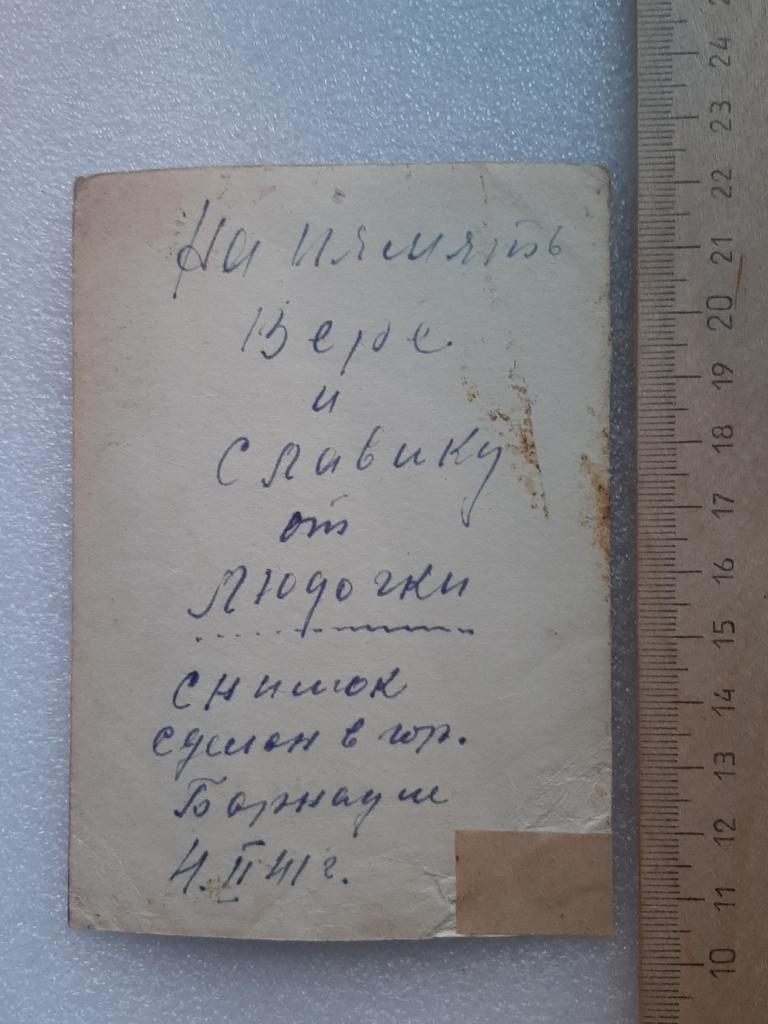 На память
Вере
и
Славику
от
Людочки
снимок
сделан в гор.
Барнауле
4. II 41 г.
24
23
22
21
20
19
18
17
16
15
14
13
12
11
10